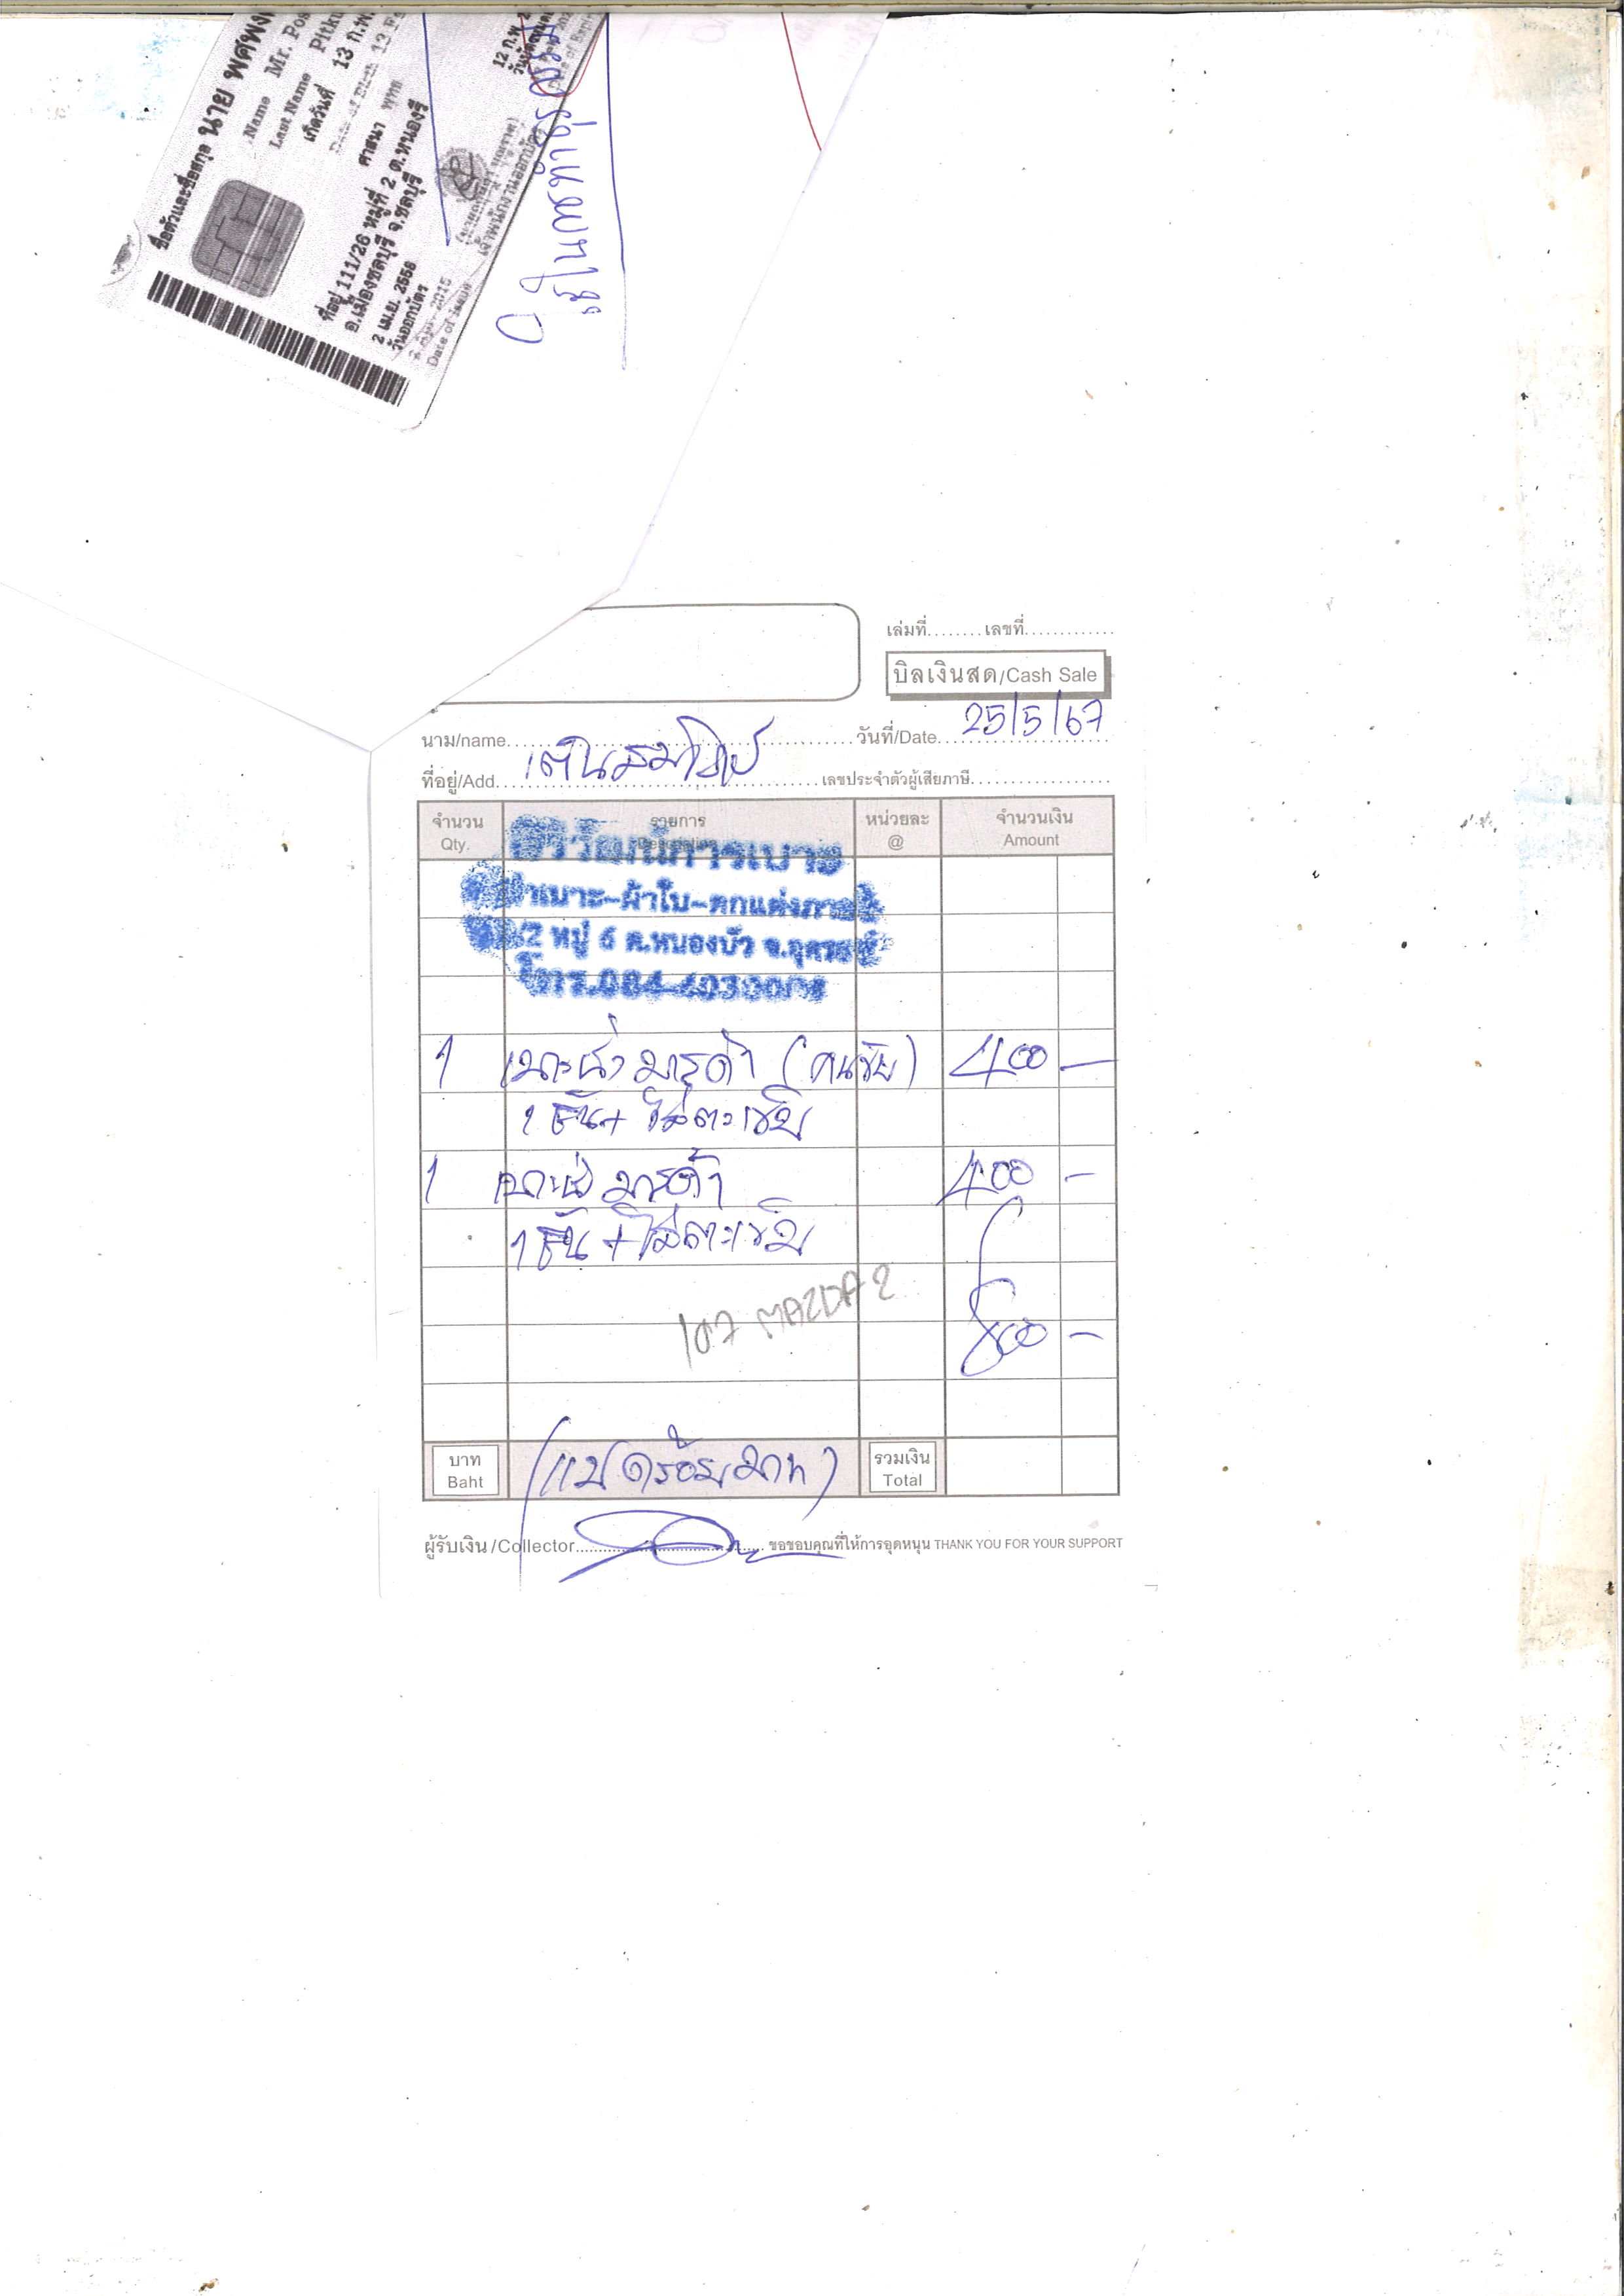 ชื่อตัวและชื่อสกุล นาย พศพง
Name Mr. Pos
Last Name Pitk
เกิดวันที่ 13 ก.พ.
Date of Birth 13 Fe
ศาสนา พุทธ
ที่อยู่ 111/26 หมู่ที่ 2 ต.หนองรี
อ.เมืองชลบุรี จ.ชลบุรี
2 เม.ย. 2558
วันออกบัตร
2015
Date of Issue
เจ้าพนักงานออกบัตร
12 ก.พ.
เล่มที่........เลขที่.............
บิลเงินสด/Cash Sale
นาม/name. วันที่/Date. 25/5/67
ที่อยู่/Add. เต็นธมโชย เลขประจำตัวผู้เสียภาษี
จำนวน รายการ หน่วยละ จำนวนเงิน
Qty. Description @ Amount
เบาะ-ผ้าใบ-ตกแต่งภาย
/2 หมู่ 6 ต.หนองบัว จ.อุดร
โทร.084-4030
1 เบาะนั่ง มาสด้า (คนขับ) 400 —
1 ชิ้น + ใส่ตะเข็บ
1 เบาะนั่ง มาสด้า 400 —
1 ชิ้น + ใส่ตะเข็บ
107 MAZDA 2
800 —
บาท (แปดร้อยบาท) รวมเงิน
Baht Total
ผู้รับเงิน/Collector ขอขอบคุณที่ให้การอุดหนุน THANK YOU FOR YOUR SUPPORT